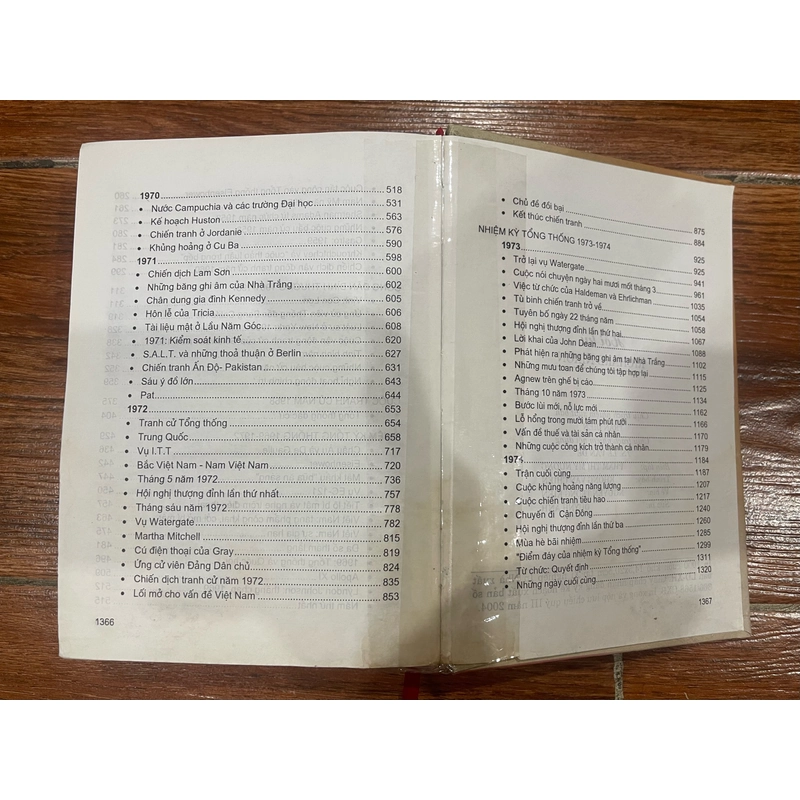 1970 ........ 518
• Nước Campuchia và các trường Đại học ........ 531
• Kế hoạch Huston ........ 563
• Chiến tranh ở Jordanie ........ 576
• Khủng hoảng ở Cu Ba ........ 590
1971 ........ 598
• Chiến dịch Lam Sơn ........ 600
• Những băng ghi âm của Nhà Trắng ........ 602
• Chân dung gia đình Kennedy ........ 605
• Hôn lễ của Tricia ........ 606
• Tài liệu mật ở Lầu Năm Góc ........ 608
• 1971: Kiểm soát kinh tế ........ 620
• S.A.L.T. và những thoả thuận ở Berlin ........ 627
• Chiến tranh Ấn Độ- Pakistan ........ 631
• Sáu ý đồ lớn ........ 643
• Pat ........ 644
1972 ........ 653
• Tranh cử Tổng thống ........ 654
• Trung Quốc ........ 658
• Vụ I.T.T ........ 717
• Bắc Việt Nam - Nam Việt Nam ........ 720
• Tháng 5 năm 1972 ........ 736
• Hội nghị thượng đỉnh lần thứ nhất ........ 757
• Tháng sáu năm 1972 ........ 778
• Vụ Watergate ........ 782
• Martha Mitchell ........ 815
• Cú điện thoại của Gray ........ 819
• Ứng cử viên Đảng Dân chủ ........ 824
• Chiến dịch tranh cử năm 1972 ........ 835
• Lối mở cho vấn đề Việt Nam ........ 853
1366
• Chủ đề đồi bại ........ 875
• Kết thúc chiến tranh ........ 884
NHIỆM KỲ TỔNG THỐNG 1973-1974 ........ 925
1973 ........ 925
• Trở lại vụ Watergate ........ 941
• Cuộc nói chuyện ngày hai mươi mốt tháng 3 ........ 961
• Việc từ chức của Haldeman và Ehrlichman ........ 1035
• Tù binh chiến tranh trở về ........ 1054
• Tuyên bố ngày 22 tháng năm ........ 1058
• Hội nghị thượng đỉnh lần thứ hai ........ 1067
• Lời khai của John Dean ........ 1088
• Phát hiện ra những băng ghi âm tại Nhà Trắng ........ 1102
• Những mưu toan để chúng tôi tập hợp lại ........ 1115
• Agnew trên ghế bị cáo ........ 1125
• Tháng 10 năm 1973 ........ 1134
• Bước lùi mới, nỗ lực mới ........ 1162
• Lỗ hổng trong mười tám phút rưỡi ........ 1166
• Vấn đề thuế và tài sản cá nhân ........ 1170
• Những cuộc công kích trở thành cá nhân ........ 1179
1974 ........ 1184
• Trận cuối cùng ........ 1187
• Cuộc khủng hoảng năng lượng ........ 1207
• Cuộc chiến tranh tiêu hao ........ 1217
• Chuyến đi Cận Đông ........ 1240
• Hội nghị thượng đỉnh lần thứ ba ........ 1260
• Mùa hè bãi nhiệm ........ 1285
• "Điểm đáy của nhiệm kỳ Tổng thống" ........ 1299
• Từ chức: Quyết định ........ 1311
• Những ngày cuối cùng ........ 1320
1367